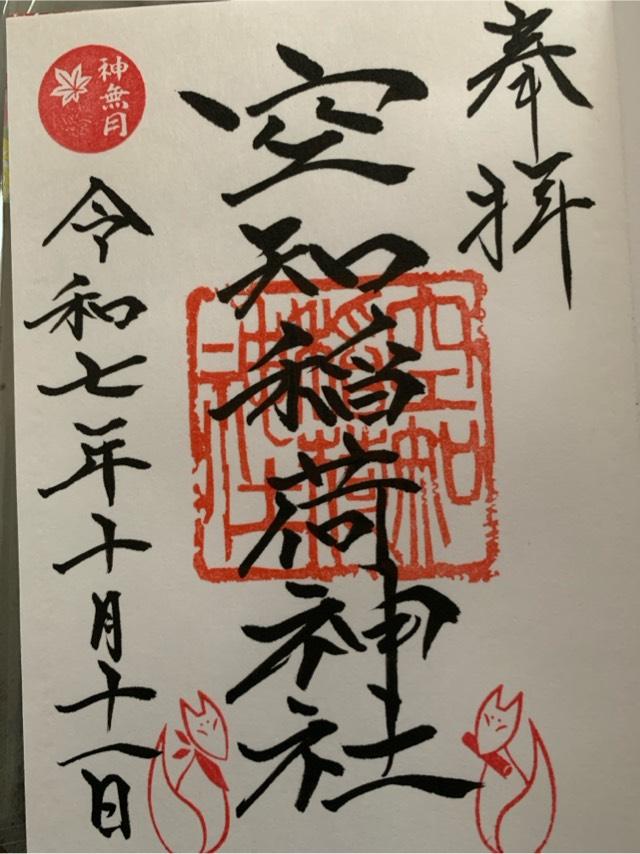 奉拝
空知稲荷神社
空知稲荷神社
神無月
令和七年十月十一日